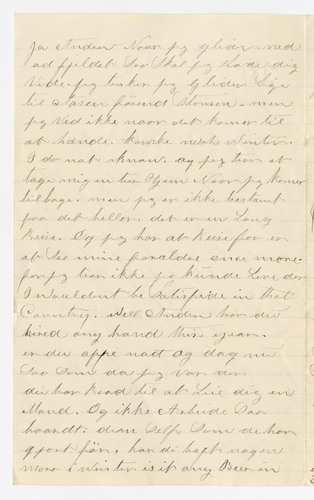 Ja Andrew Naar jeg glider ned
ad fjeldet Saa Skal jeg Lade dig
Vide. jeg tenker jeg Glider Lige
til Mason Stonson. men
jeg Ved ikke naar det komer til
at hænde. kanske nekst Winter.
I do nat know. og jeg tror at
tage mig en tur Hjem Naar jeg komer
tilbage. men jeg er ikke bestemt
paa det heller. det er en Lang
Reise. Og jeg har at Reise for en
at See mine foraldre once more.
for jeg tror ikke jeg kunde Live der
I wouldent be Satisfide in that
Country. well Andrew har du
hired any hand this year.
er du oppe nadt og dag nu
Saa Som da jeg var der.
du har Raad til at Leie dig en
Mand. Og ikke Arbeide Saa
haardt: din Self Som du har
gjort før, har du haft nogen
moro i winter is it any Beer in